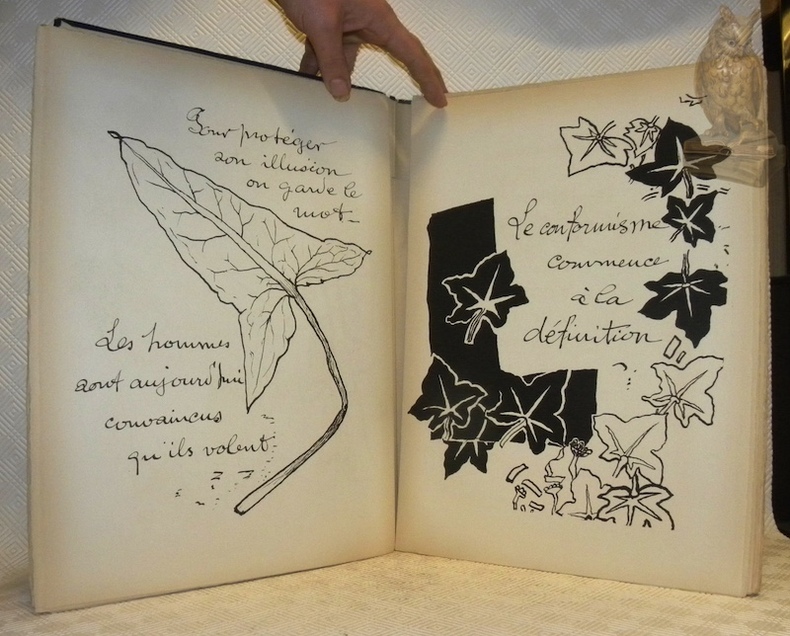 Pour protéger
son illusion
on garde le
mot_
Les hommes
sont aujourd'hui
convaincus
qu'ils volent
Le conformisme
commence
à la
définition